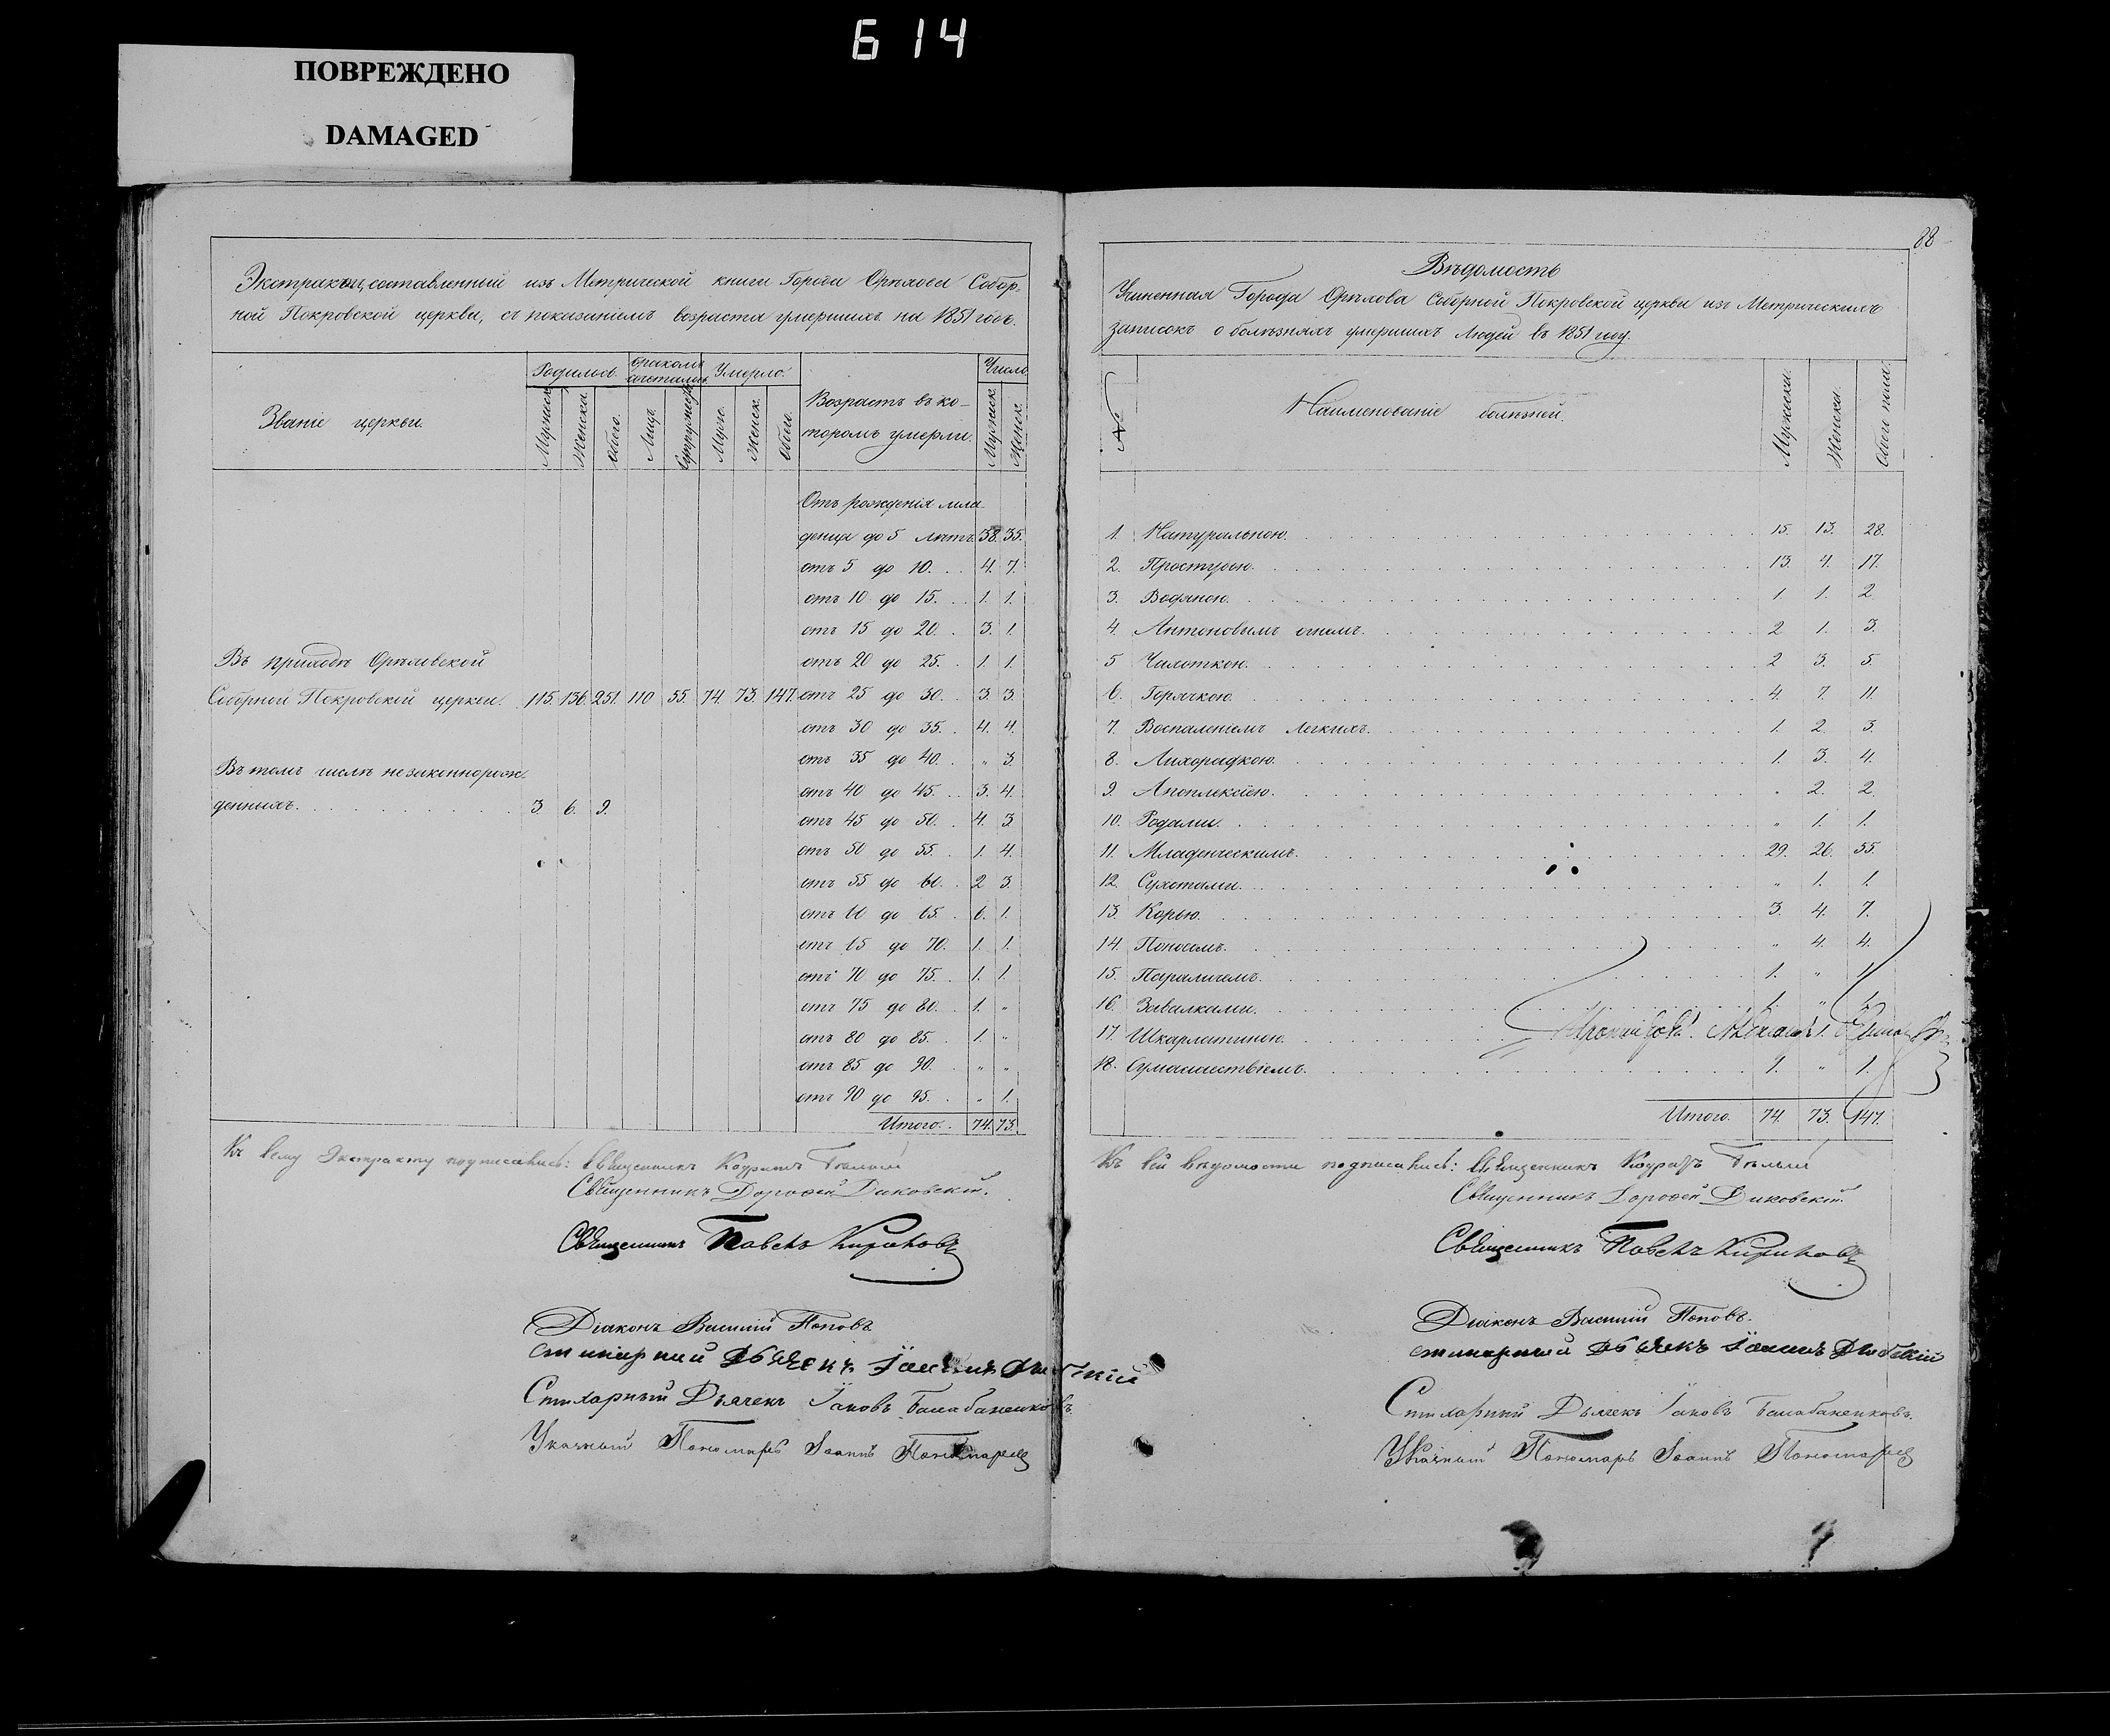 614
ПОВРЕЖДЕНО
DAMAGED
Экстрактъ, составленный изъ Метрической книги Города Орѣхова Собор-
ной Покровской церкви, съ показаніемъ возраста умершихъ на 1851 годъ.
Званіе церкви.
Родилось.
Бракомъ сочеталось.
Умерло.
Возрастъ въ ко-
торомъ умерли.
Число
Мужеска
Женска.
Обоего.
Лицъ.
Супружествъ
Муже.
Женск.
Обоего.
Мужеск.
Женск.
Отъ рожденія мла-
денца до 5 лѣтъ. 38. 35.
отъ 5 до 10. . . 4. 7.
отъ 10 до 15. . . 1. 1.
отъ 15 до 20. . 3. 1.
отъ 20 до 25. . 1. 1.
Въ приходѣ Орѣховской
Соборной Покровской церкви. 115. 136. 251. 110 55. 74. 73. 147.
отъ 25 до 30. . 3. 3.
отъ 30 до 35. . 4. 4.
отъ 35 до 40. . „ 3
отъ 40 до 45. . . 3. 4.
Въ томъ числѣ незаконнорож-
денныхъ. . . . . . . . . 3. 6. 9.
отъ 45 до 50. . 4. 3
отъ 50 до 55. . 1. 4.
отъ 55 до 60. . 2 3.
отъ 60 до 65. . 6. 1.
отъ 65 до 70. . 1. 1.
отъ 70 до 75. . 1. 1.
отъ 75 до 80. . 1. „
отъ 80 до 85. . 1. „
отъ 85 до 90. . „ „
отъ 90 до 95. . „ 1.
Итого. . 74. 73.
Къ сему Экстракту подписались: Священникъ Кодратъ Бѣлый
Священникъ Дорофей Диковскій.
Священникъ Павелъ Кириковъ
Діаконъ Василій Поповъ
стихарный Дьячекъ Іоаннъ
Стихарный Дьячекъ Іаковъ Балабаненковъ.
Указный Пономарь Іоаннъ Пономаревъ
88
Вѣдомость
Учиненная Города Орѣхова Соборной Покровской церкви изъ Метрическихъ
записокъ о болѣзняхъ умершихъ Людей въ 1851 году.
№
Наименованіе болѣзней.
Мужеска.
Женска.
Обоего пола.
1. Натуральною. 15. 13. 28.
2. Простудою. 13. 4. 17.
3. Водяною. 1. 1. 2
4. Антоновымъ огнемъ. 2 1. 3.
5 Чахоткою. 2 3. 5.
6. Горячкою. 4. 7. 11.
7. Воспаленіемъ легкихъ. 1. 2 3.
8. Лихорадкою. 1. 3. 4.
9. Апоплексіею. „ 2. 2
10. Родами. „ 1. 1.
11. Младенческимъ. 29. 26. 55.
12. Сухотами. „ 1. 1.
13. Корью. 3. 4. 7.
14. Поносомъ. „ 4. 4.
15. Параличемъ. 1. „ 1.
16. Завалками. 1. „ 1.
17. Шкарлатиною.
18. Сумашествіемъ. 1. „ 1.
Итого. 74. 73. 147.
Къ сей вѣдомости подписались: Священникъ Кодратъ Бѣлый
Священникъ Дорофей Диковскій.
Священникъ Павелъ Кириковъ
Діаконъ Василій Поповъ.
стихарный Дьячекъ Іоаннъ
Стихарный Дьячекъ Іаковъ Балабаненковъ.
Указный Пономарь Іоаннъ Пономаревъ